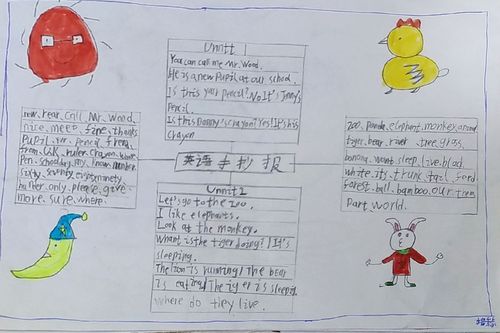 Unit 1
You can call me Mr. Wood.
He is a new Pupil at our school.
Is this your pencil? No It's Jenny's
Pencil.
Is this Danny's crayon? Yes! It's his
Crayon
near. call Mr. Wood.
nice. meet. fine. thanks
Pupil. pencil.
ruler. crayon.
Pen.
only. please. give.
more. sure. where.
英语手抄报
zoo. panda. elephant. monkey. around
tiger. bear. river. tree. grass.
banana. want. sleep. live.
white. its. trunk. tail. food
forest. ball. bamboo. our
Part. world.
Unit 2
Let's go to the zoo.
I like elephants.
Look at the monkey.
What is the tiger doing? It's
sleeping.
The lion is running! The bear
is eating! The tiger is sleeping
where do they live.